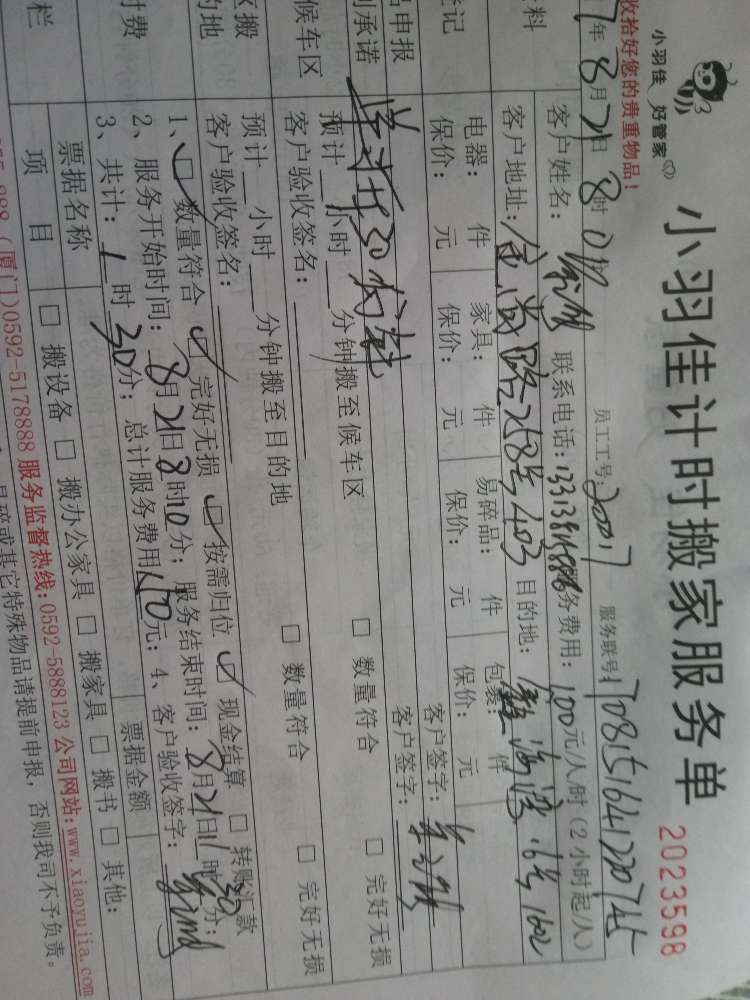 小羽佳 好管家
小羽佳计时搬家服务单
2023598
收拾好您的贵重物品！
员工工号：20017 服务联号
年8月21日8时0
料
客户姓名： 联系电话： 服务费用：100元/人/时（2小时起/人）
客户地址：金尚路258号403 目的地：
登记
电器： 件 家具： 件 易碎品： 件 包裹： 件
保价： 元 保价： 元 保价： 元 保价： 元
品申报
客户签字：
承诺
客户签字：
预计 小时 分钟搬至候车区 □ 数量符合 □ 完好无损
候车区
客户验收签名：
区搬
预计 小时 分钟搬至目的地 □ 数量符合 □ 完好无损
的地
客户验收签名：
1、☑ 数量符合 ☑ 完好无损 ☑ 按需归位 ☑ 现金结算 □ 转账汇款
时费
2、服务开始时间：8月21日8时10分；服务结束时间：8月21日11时 分；
3、共计：1时30分；总计服务费用150元；4、客户验收签字：
栏
票据名称 票据金额
项 目 □ 搬设备 □ 搬办公家具 □ 搬家具 □ 搬书 □ 其他：
888（厦门）0592-5178888 服务监督热线：0592-5888123 公司网站：www.xiaoyujia.com
易碎或其它特殊物品请提前申报，否则我司不予负责。